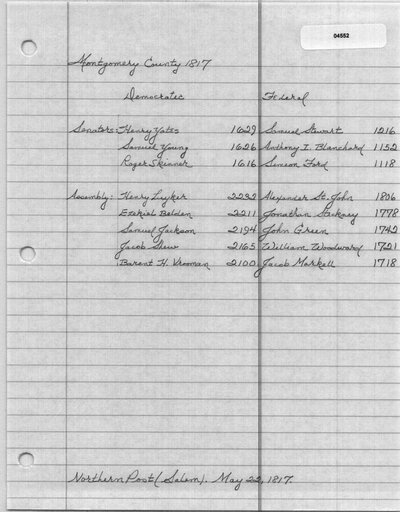 04552
Montgomery County 1817
Democratic Federal
Senators: Henry Yates 1629 Samuel Stewart 1216
Samuel Young 1626 Anthony I. Blanchard 1152
Roger Skinner 1616 Simeon Ford 1118
Assembly: Henry Lyker 2232 Alexander St. John 1806
Ezekial Belden 2211 Jonathan Stickney 1778
Samuel Jackson 2194 John Green 1742
Jacob Shew 2165 William Woodward 1721
Barent H. Vrooman 2100 Jacob Markell 1718
Northern Post (Salem). May 22, 1817.